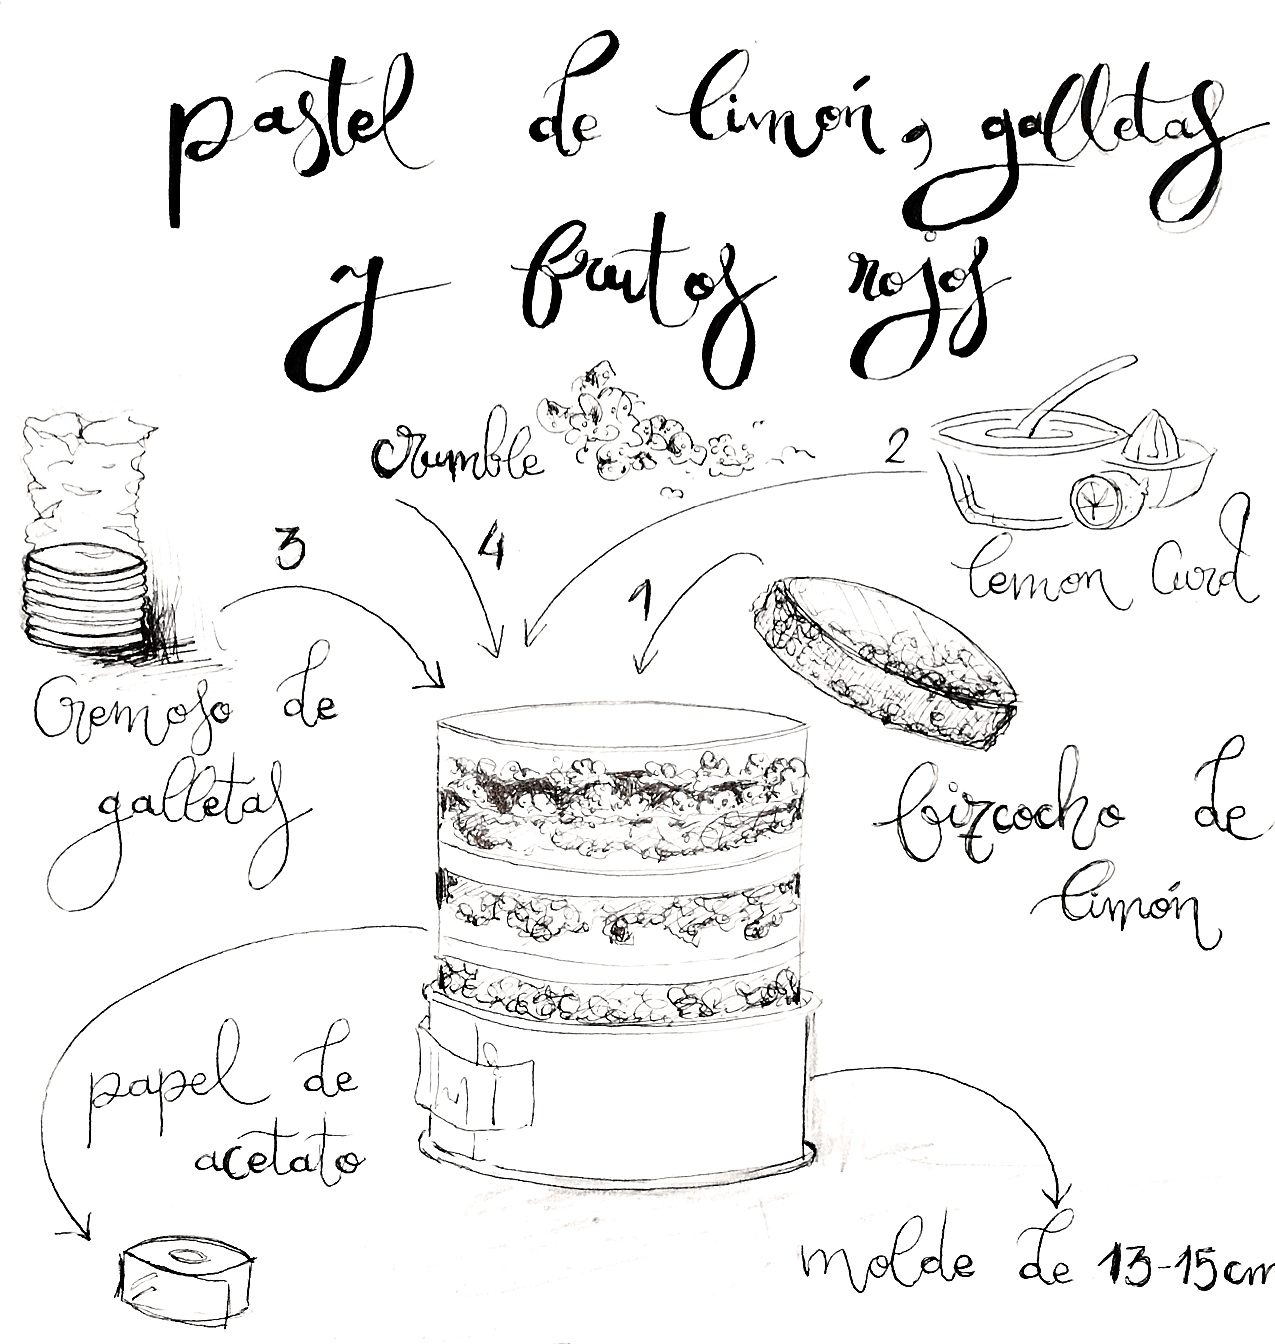 pastel de limón, galletas
y frutos rojos
crumble
2
3
4
lemon Curd
1
Cremoso de
galletas
bizcocho de
limón
papel de
acetato
molde de 13-15cm